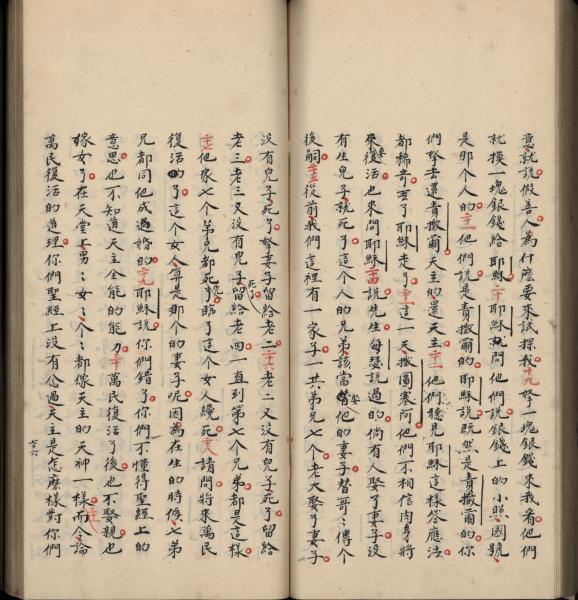 意就說假善人為什麼要來試探我十九拏一塊銀錢來我看他們
就摸一塊銀錢給耶穌二十耶穌就問他們說銀錢上的小照國號
是那個人的二十一他們說是責撒爾的耶穌說既然是責撒爾的你
們拏去還責撒爾天主的還天主二十二他們聽見耶穌這樣答應法
都稀奇丟了耶穌走了二十三這一天撒圖塞阿他們不相信肉身將
來復活也來問耶穌二十四說先生每瑟說過的倘有人娶了妻子沒
有生兒子就死了這個人的兄弟該當替他的妻子替哥哥傳個
後嗣二十五從前我們這裡有一家子一共弟兄七個老大娶了妻子
沒有兒子死了拏妻子留給老二二十六老二又沒有兒子死了留給
老三老三又沒有兒子死留給老四一直到第七個兄弟都是這樣
二十七他家七個弟兄都死完了臨了這個女人纔死二十八請問將來萬民
復活的了這個女人算是那個的妻子呢因為在生的時候七弟
兄都同他成過婚的二十九耶穌說你們錯了你們不懂得聖經上的
意思也不知道天主全能的能力三十萬民復活了後也不娶親也
嫁女了在天堂上男女個個都像天主的天神一樣而今論
萬民復活的道理你們聖經上沒有念過天主是怎麼樣對你們
七十六